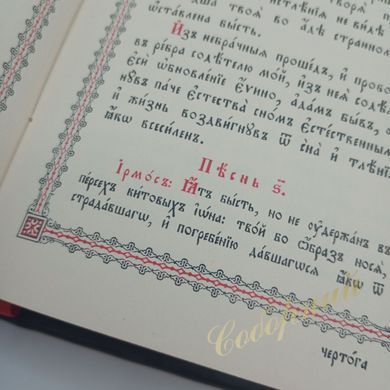 душа твоѧ̀ во а҆́дѣ стра́нноле
ѡ҆ста́влена бы́сть.
И҆з̾ небра́чныѧ проше́дъ, и҆ пробо
въ ре́бра содѣ́телю мо́й, и҆з̾ неѧ̀ содѣ́л
є҆сѝ ѡ҆бновле́ніе є҆́ѵино, а҆да́мъ бы́въ,
нꙋ́въ па́че є҆стества̀ сно́мъ є҆сте́ственным
и҆ жи́знь воздви́гнꙋвъ ѿ сна̀ и҆ тлѣ́ні
ꙗ҆́кѡ всеси́ленъ.
Пѣ́снь ѕ҃.
І҆рмо́съ: Ꙗ҆́тъ бы́сть, но не ᲂу҆держа́нъ въ
пе́рсехъ ки́товыхъ і҆ѡ́на: тво́й бо ѡ҆́бразъ носѧ̀,
страда́вшагѡ, и҆ погребе́нію да́вшагѡсѧ ꙗ҆́кѡ ѿ
черто́га
Соборный